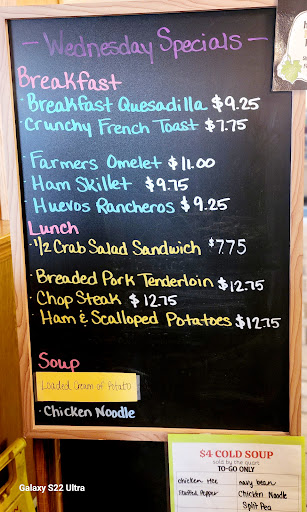 - Wednesday Specials -
Breakfast
· Breakfast Quesadilla $9.25
· Crunchy French Toast $7.75
· Farmers Omelet $11.00
· Ham Skillet $9.75
· Huevos Rancheros $9.25
Lunch
· 1/2 Crab Salad Sandwich $7.75
· Breaded Pork Tenderloin $12.75
· Chop Steak $12.75
· Ham & Scalloped Potatoes $12.75
Soup
Loaded Cream of Potato
· Chicken Noodle
$4 COLD SOUP
sold by the quart
TO-GO ONLY
chicken rice
navy bean
Stuffed Pepper
Chicken Noodle
Split Pea
Galaxy S22 Ultra